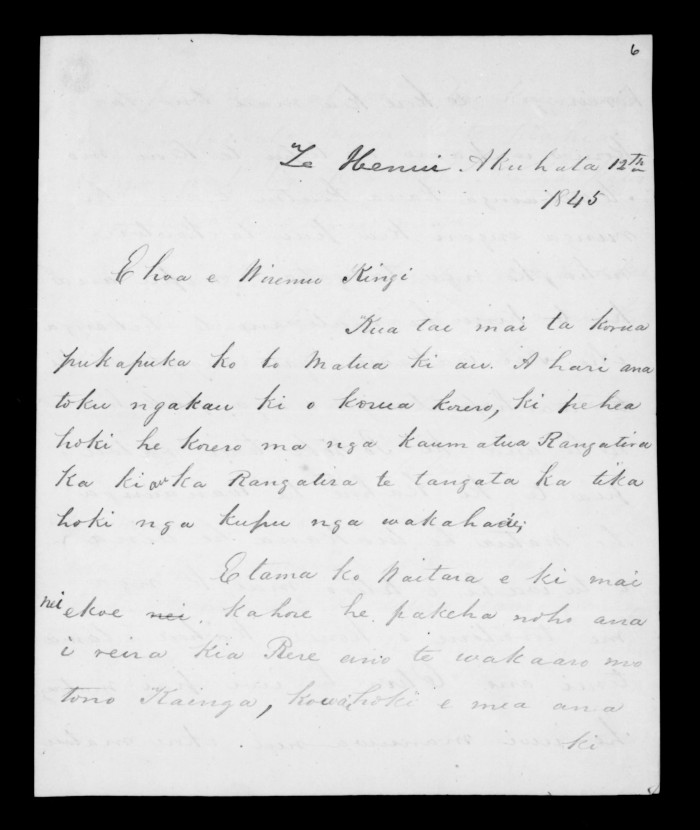 6
Te Henui Akuhata 12th
1845
E hoa e Wiremu Kingi
Kua tae mai ta korua
pukapuka ko to Matua ki au. A hari ana
toku ngakau ki o korua korero, ki pehea
hoki he korero ma nga kaumatua Rangatira
ka ki ka Rangatira te tangata ka tika
hoki nga kupu nga
E tama ko Waitara e ki mai
nei ekoe nei. kahore he pakeha noho ana
i reira kia Rere ano te wakaaro mo
tono Kainga, kowai hoki e mea ana
ki